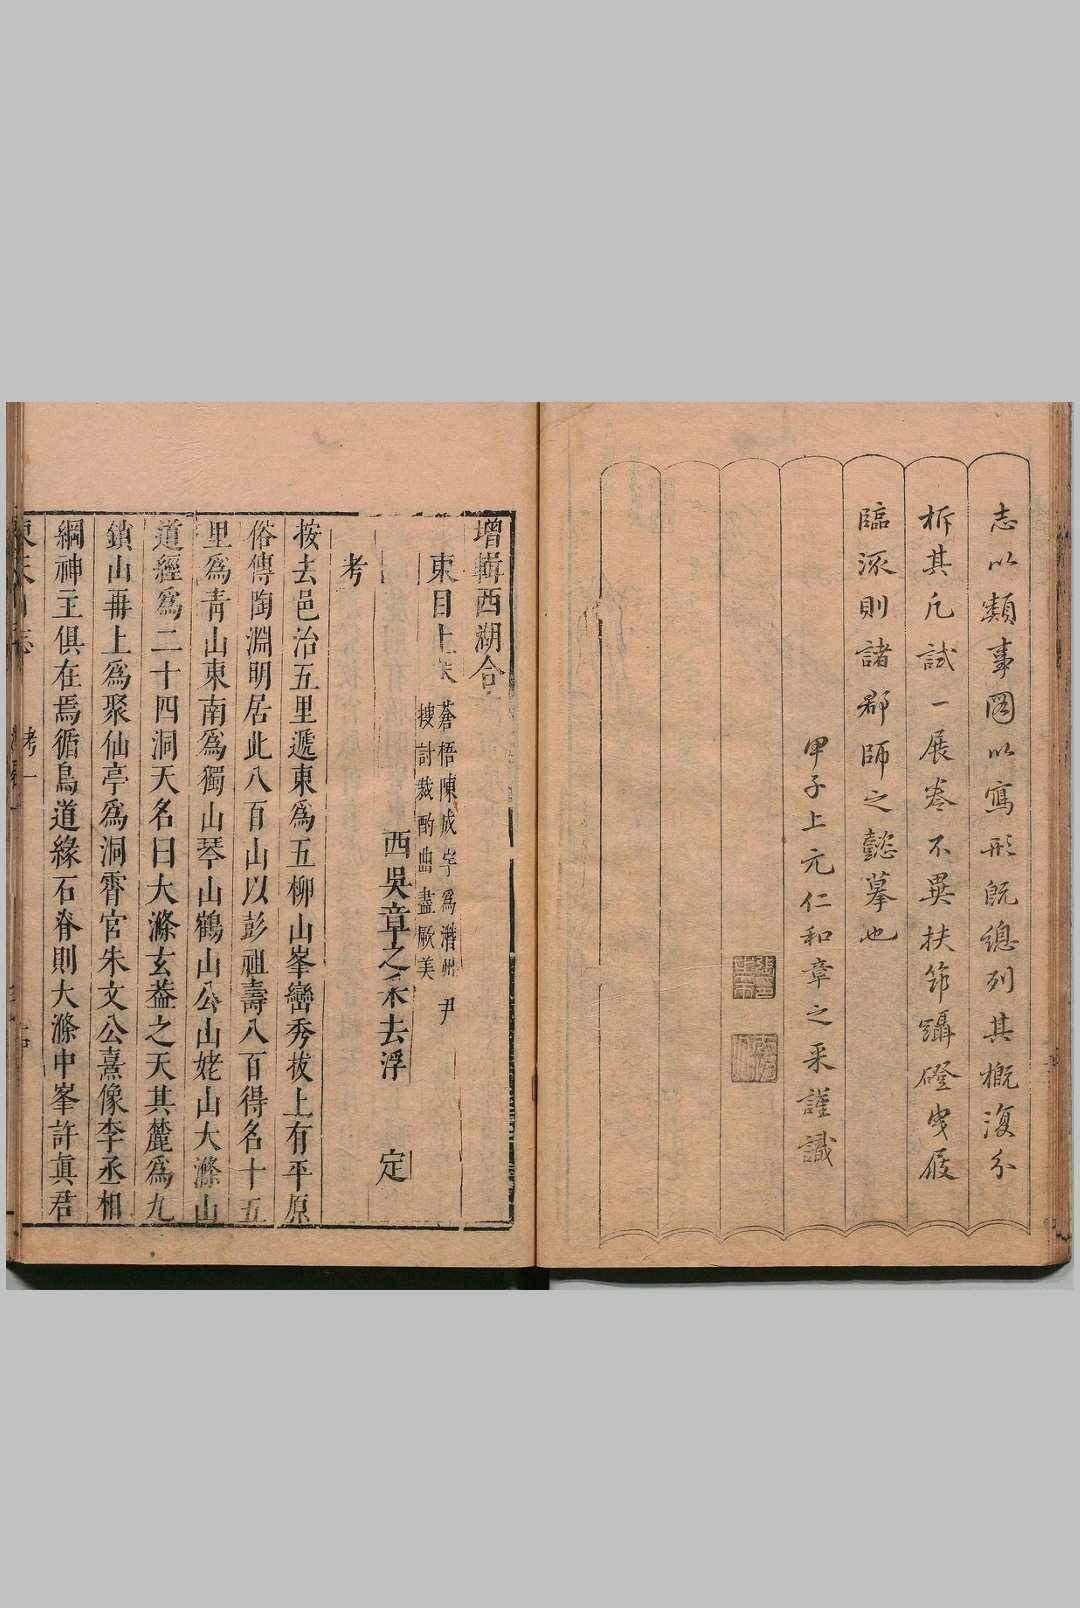 志以類事圖以寫形旣總列其概復分
析其凡試一展卷不異扶笻躡磴曳屐
臨流則諸郡師之懿摹也
甲子上元仁和章之采謹識
增輯西湖合
東目上
蒼梧陳成宇爲潛州尹
搜討裁酌曲盡厥美
西吳章之采去浮 定
考
按去邑治五里遞東爲五柳山峯巒秀拔上有平原
俗傳陶淵明居此八百山以彭祖壽八百得名十五
里爲青山東南爲獨山琴山鶴山公山姥山大滌山
道經爲二十四洞天名曰大滌玄葢之天其麓爲九
鎖山再上爲聚仙亭爲洞霄宮朱文公熹像李丞相
綱神王俱在焉循鳥道緣石脊則大滌中峯許真君
考一